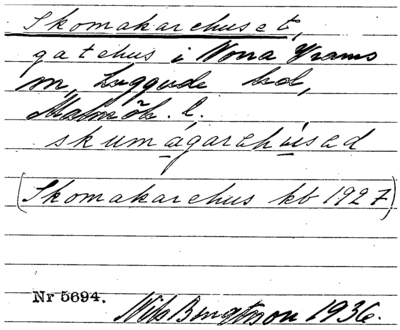 Skomakarehuset,
gatehus i Norra Vrams
sn, Luggude hd,
Malmöh. l.
skumågarehúsed
(Skomakarehus kb 1927)
Nr 5694.
Nils Bengtsson 1936.